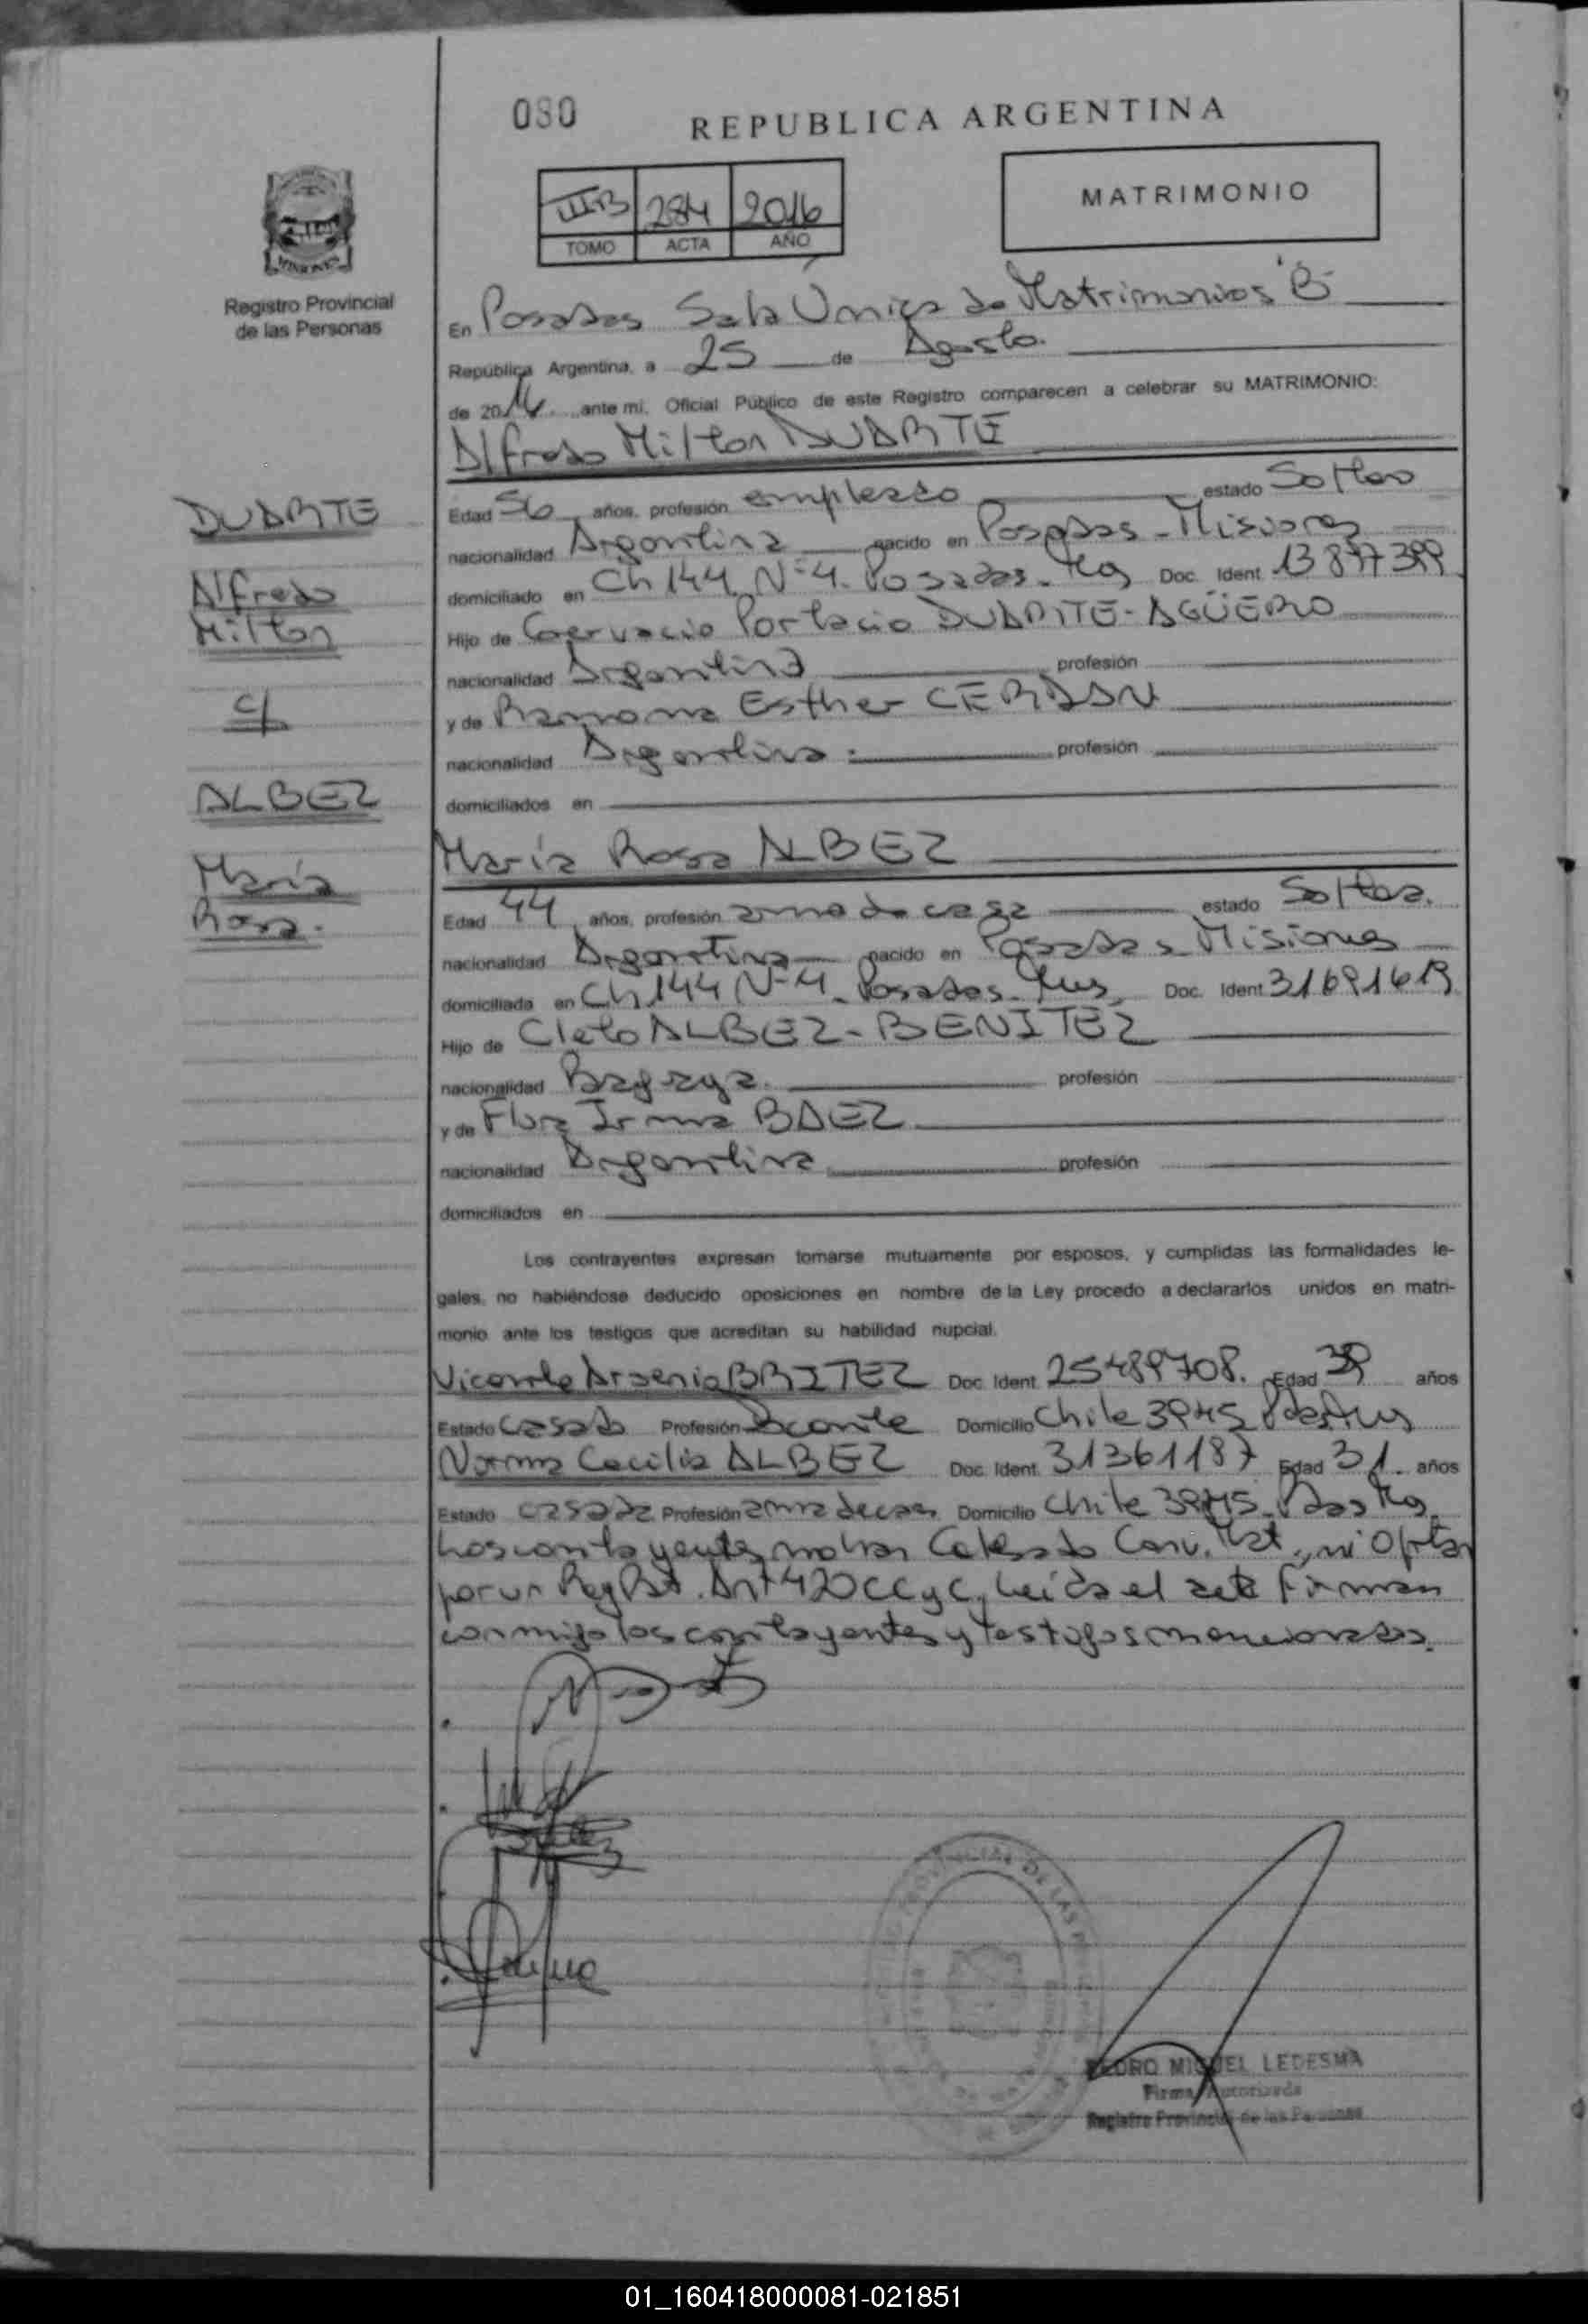 080
REPUBLICA ARGENTINA
MATRIMONIO
IIIB 284 2016
TOMO ACTA AÑO
MISIONES
Registro Provincial
de las Personas
En Posadas Sala Única de Matrimonios "B"
República Argentina, a 25 de Agosto.
de 2016. ante mi, Oficial Público de este Registro comparecen a celebrar su MATRIMONIO:
Alfredo Milton DUARTE
DUARTE
Alfredo
Milton
c/
ALBEZ
María
Rosa.
Edad 56 años, profesión empleado estado Soltero
nacionalidad Argentina nacido en Posadas - Misiones
domiciliado en Ch 144 Nº 4. Posadas - Mns Doc. Ident 13 877 399
Hijo de Gervacio Portacio DUARTE - AGÜERO
nacionalidad Argentina profesión
y de Ramona Esther CERDAN
nacionalidad Argentina profesión
domiciliados en
María Rosa ALBEZ
Edad 44 años, profesión ama de casa estado Soltera.
nacionalidad Argentina nacido en Posadas Misiones
domiciliada en Ch 144 Nº 4 Posadas - Mns Doc. Ident 31691619
Hijo de Cleto ALBEZ - BENITEZ
nacionalidad profesión
y de Flora Irma BAEZ
nacionalidad Argentina profesión
domiciliados en
Los contrayentes expresan tomarse mutuamente por esposos, y cumplidas las formalidades le-
gales, no habiéndose deducido oposiciones en nombre de la Ley procedo a declararlos unidos en matri-
monio ante los testigos que acreditan su habilidad nupcial.
Vicente Arsenio BRITEZ Doc. Ident. 25489708. Edad 39 años
Estado casado Profesión Domicilio Chile 3945
Norma Cecilia ALBEZ Doc. Ident. 31361187 Edad 31. años
Estado casada Profesión ama de casa Domicilio Chile 3945
Los contrayentes no han Celebrado Conv. Mat., ni Optan
por un Reg Pat. Art 420 CC y C, leída el acta firman
conmigo los contrayentes y testigos mencionados.
PEDRO MIGUEL LEDESMA
Firma Autorizada
Registro Provincial de las Personas
01_160418000081-021851